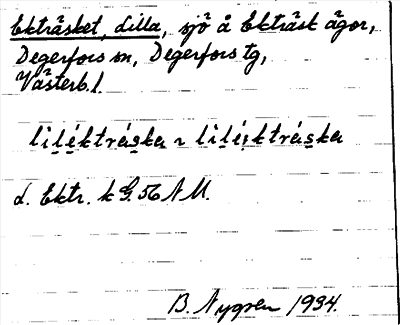 Ekträsket, Lilla, sjö å Ekträsk ägor,
Degerfors sn, Degerfors tg,
Västerb. l.
lilẹ́ktráska ~ lilẹ́ktráska
L. Ektr. k G. 56 N M.
B. Nygren 1934.